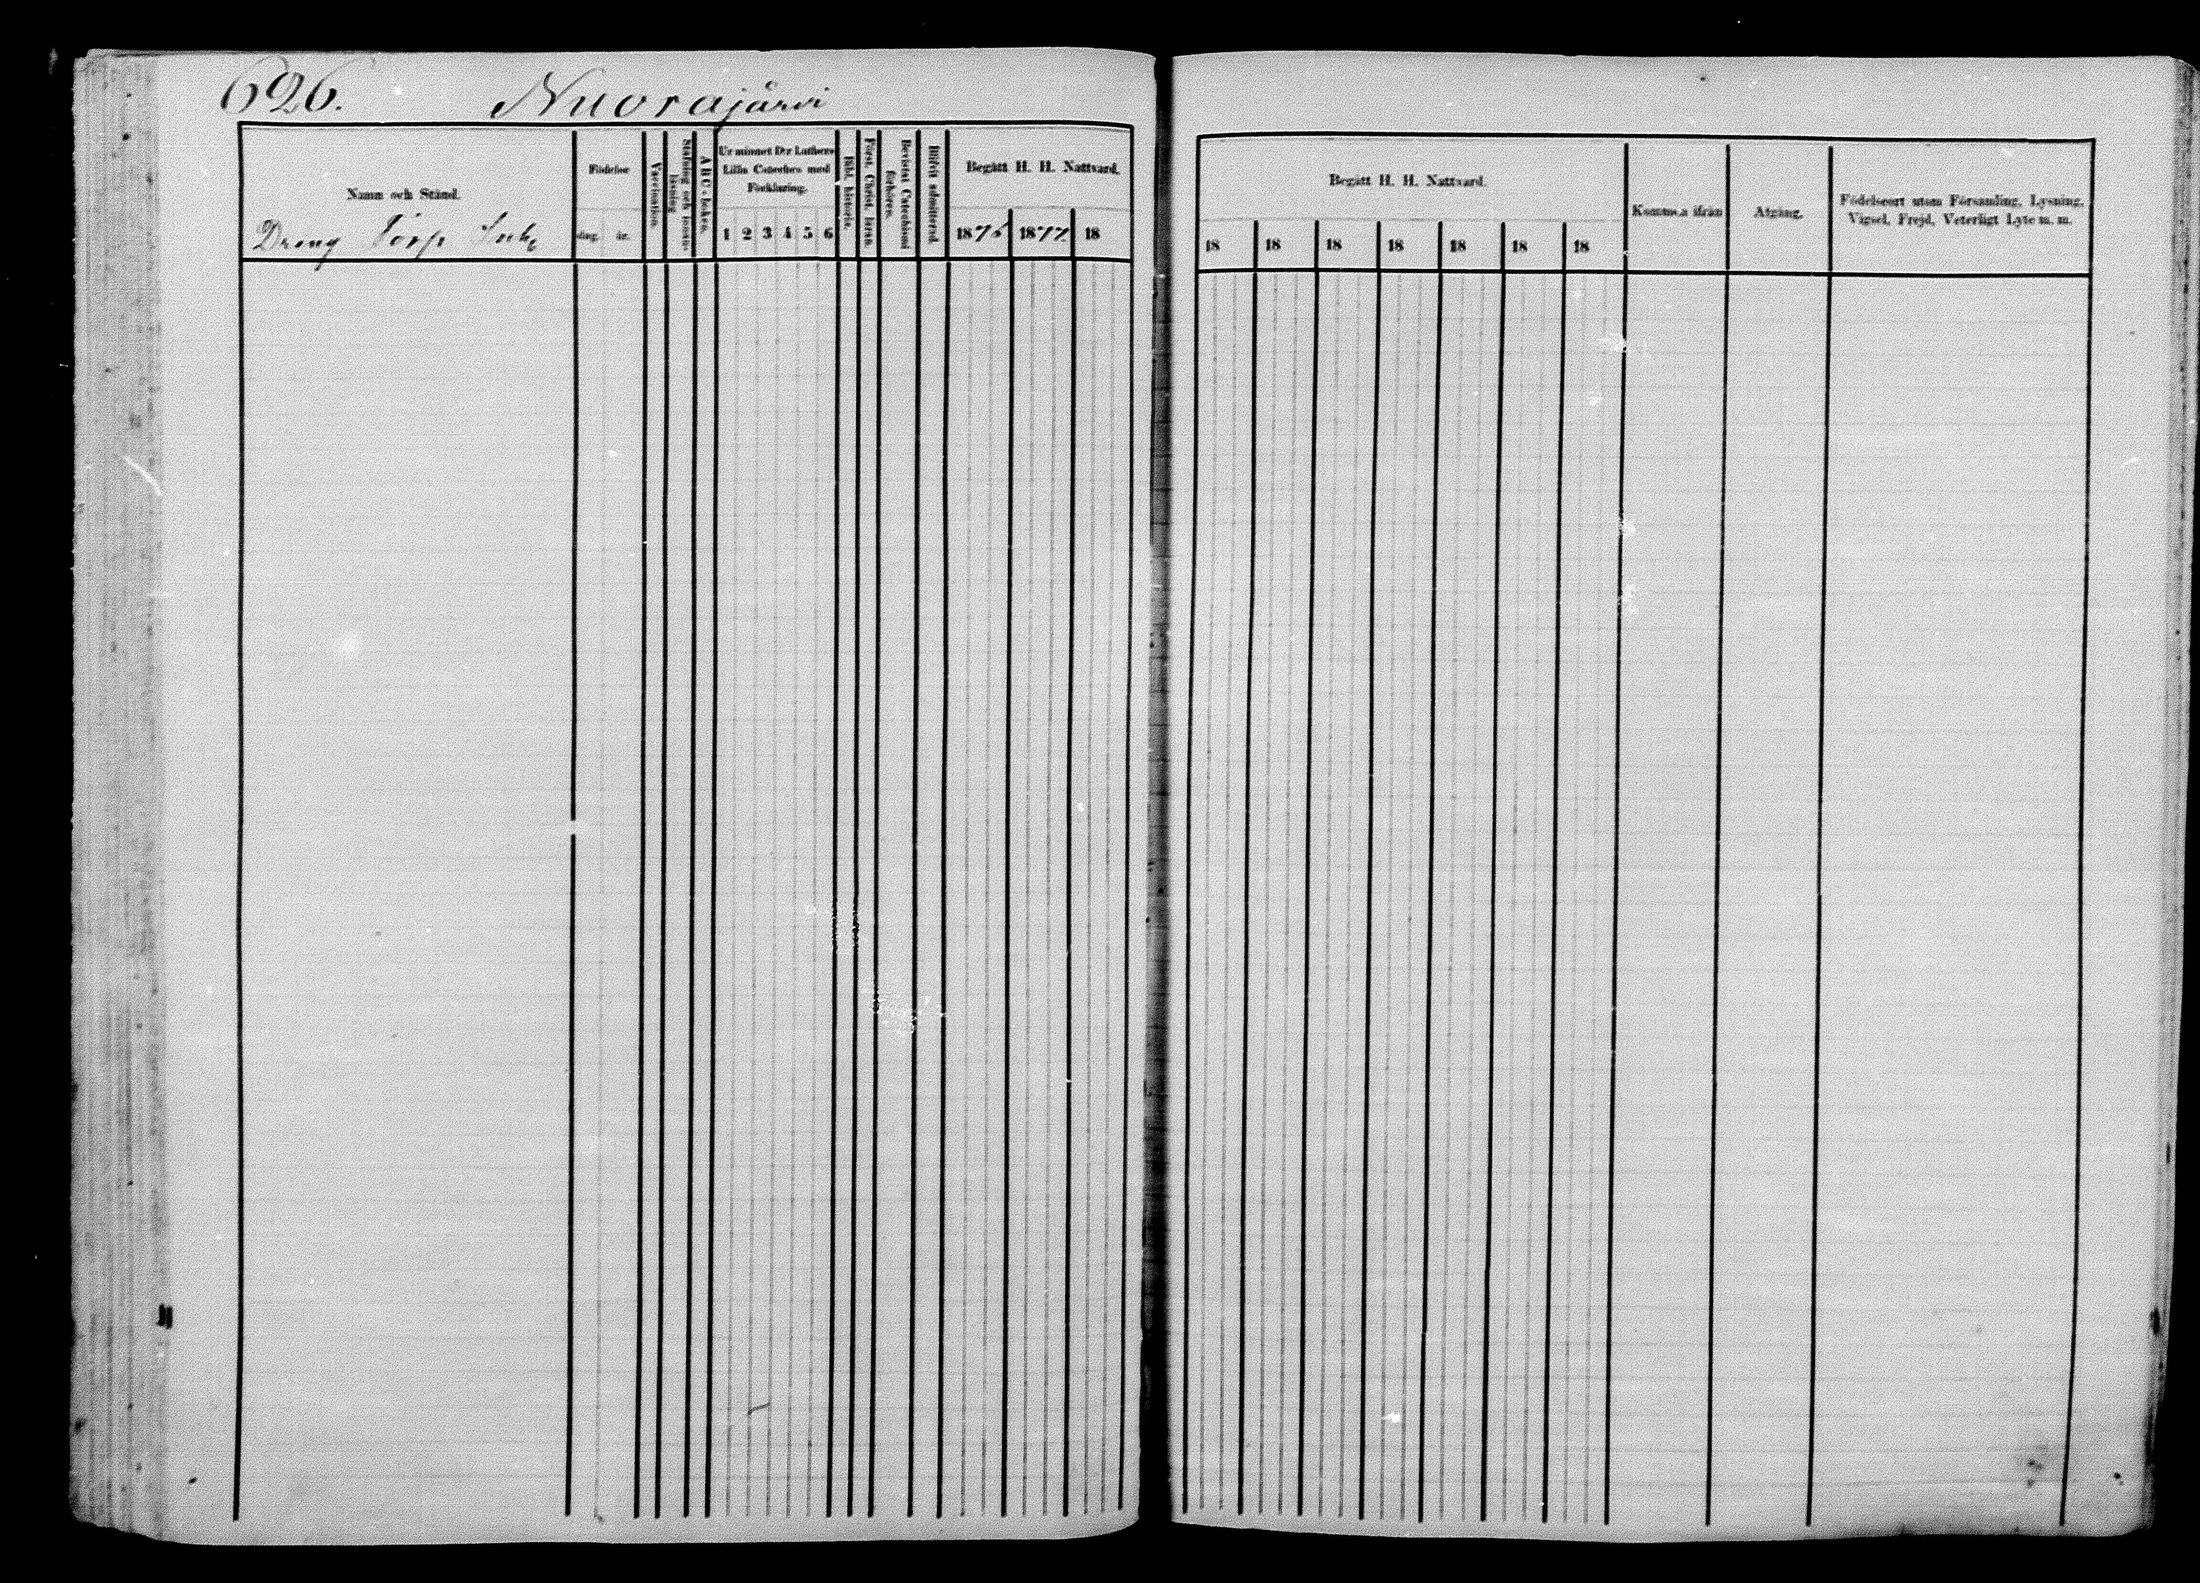 626. Nuorajärvi
Namn och Stånd.
Födelse
dag. år.
Vaccination.
Stafning och innanläsning
A B C-boken.
Ur minnet D:r Luthers
Lilla Cateches med
Förklaring.
1 2 3 4 5 6
Bibl. historia.
Först. Christ. läran.
Bevistat Catechismi
förhören.
Blifvit admitterad.
Begått H. H. Nattvard.
1875 1877 18
Dreng Torp
Begått H. H. Nattvard.
18 18 18 18 18 18 18
Kommen ifrån
Afgång.
Födelseort utom Församling, Lysning,
Vigsel, Frejd, Veterligt Lyte m. m.